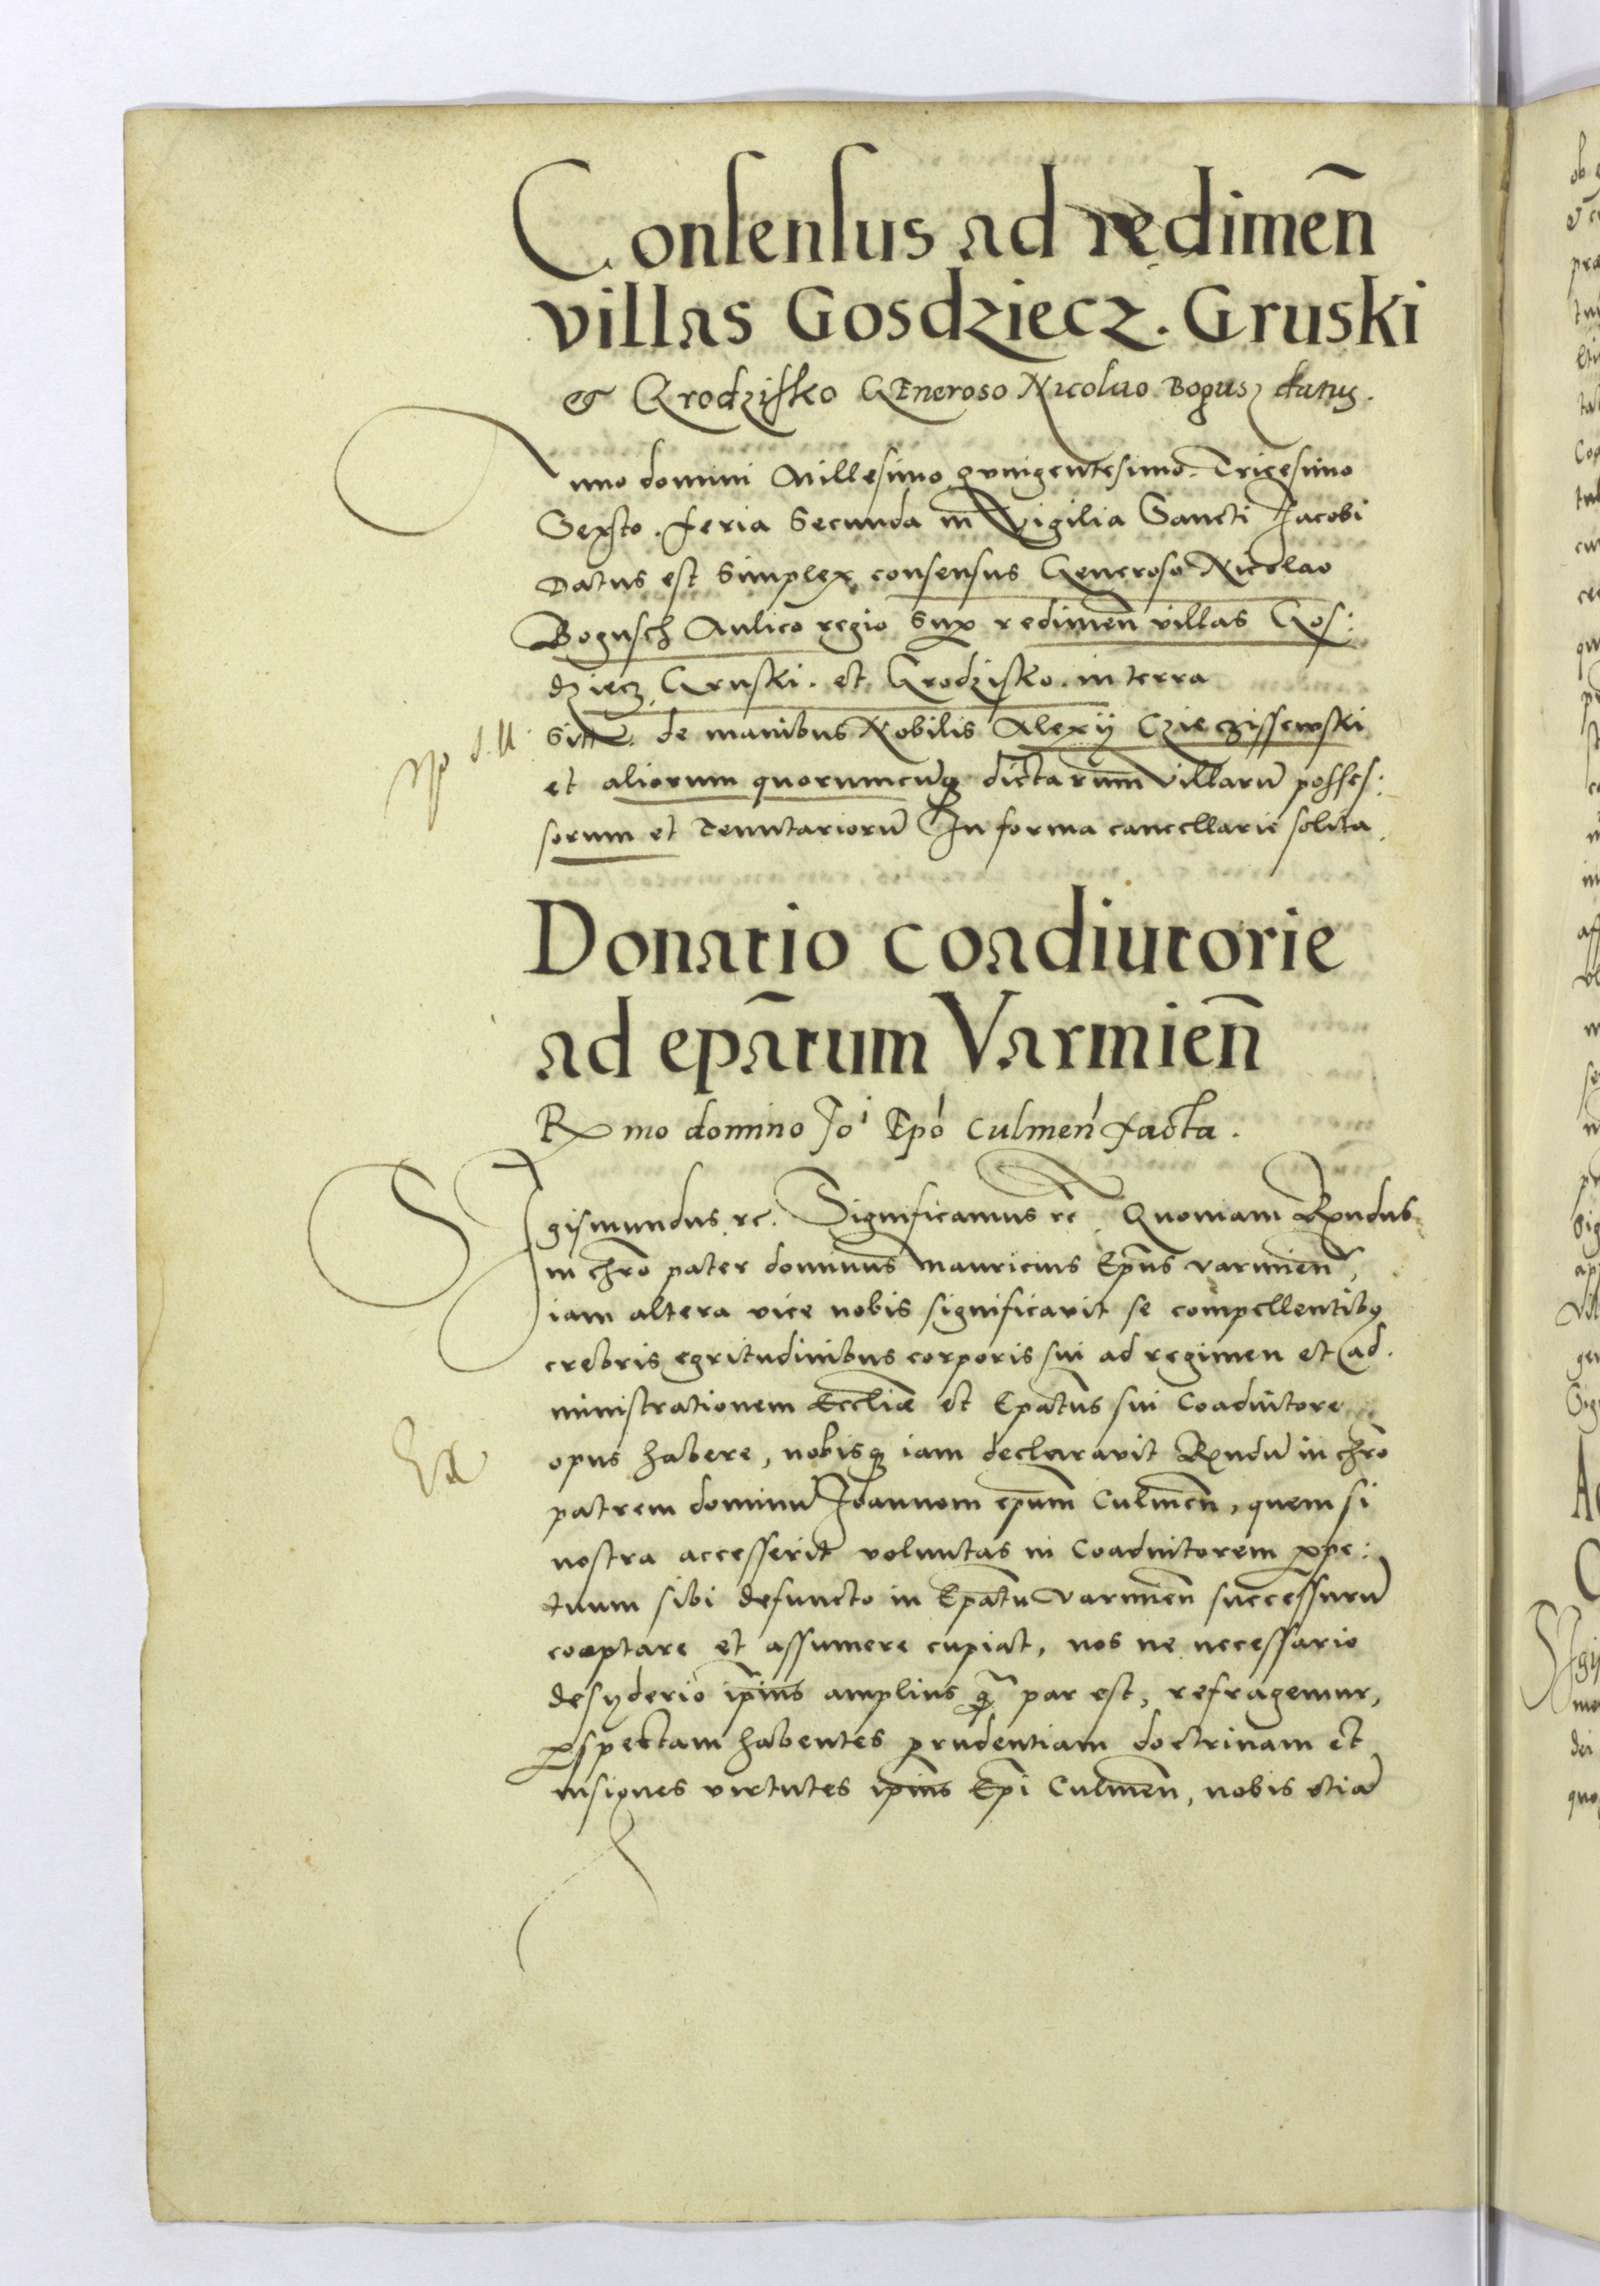 Consensus ad redimen̄
villas Gosdziecz. Gruski
et Grodzisko Generoso Nicolao Bogusz datus.
Anno domini Millesimo quingentesimo Tricesimo
Sexto. feria Secunda in Vigilia Sancti Jacobi
Datus est simplex consensus Generoso Nicolao
Bogusch Aulico regio Sup redimen̄ villas Gos:
dziecz Gruski. et Grodzisko. in terra
de manibus Nobilis Alexij Czieczissewski
et aliorum quorumcunq̃ dictarum villarū posses:
sorum et Tenutariorū In forma cancellarie solita.
Donatio coadiutorie
ad epātum Varmien̄
Rmo domino Jo Epo Culmen facta.
Sigismundus rc. Significamus rc. Quoniam Rndus
in chro pater dominus Mauricius Epūs varmien̄,
iam altera vice nobis significavit se compellentibꝰ
crebris egritudinibus corporis sui ad regimen et ad.
ministrationem Eccliæ et Epatus sui Coadiutore
opus habere, nobisq̃ iam declaravit Rndū in chro
patrem dominū Joannem epum Culmen̄, quem si
nostra accesserit voluntas in Coadiutorem ppe:
tuum sibi defuncto in Epatu varmien̄ successurū
cooptare et assumere cupiat, nos ne necessario
desyderio ipius amplius q̃ par est, refragemur,
pspectam habentes prudentiam doctrinam et
insignes virtutes ipius Epi Culmen̄, nobis etiā